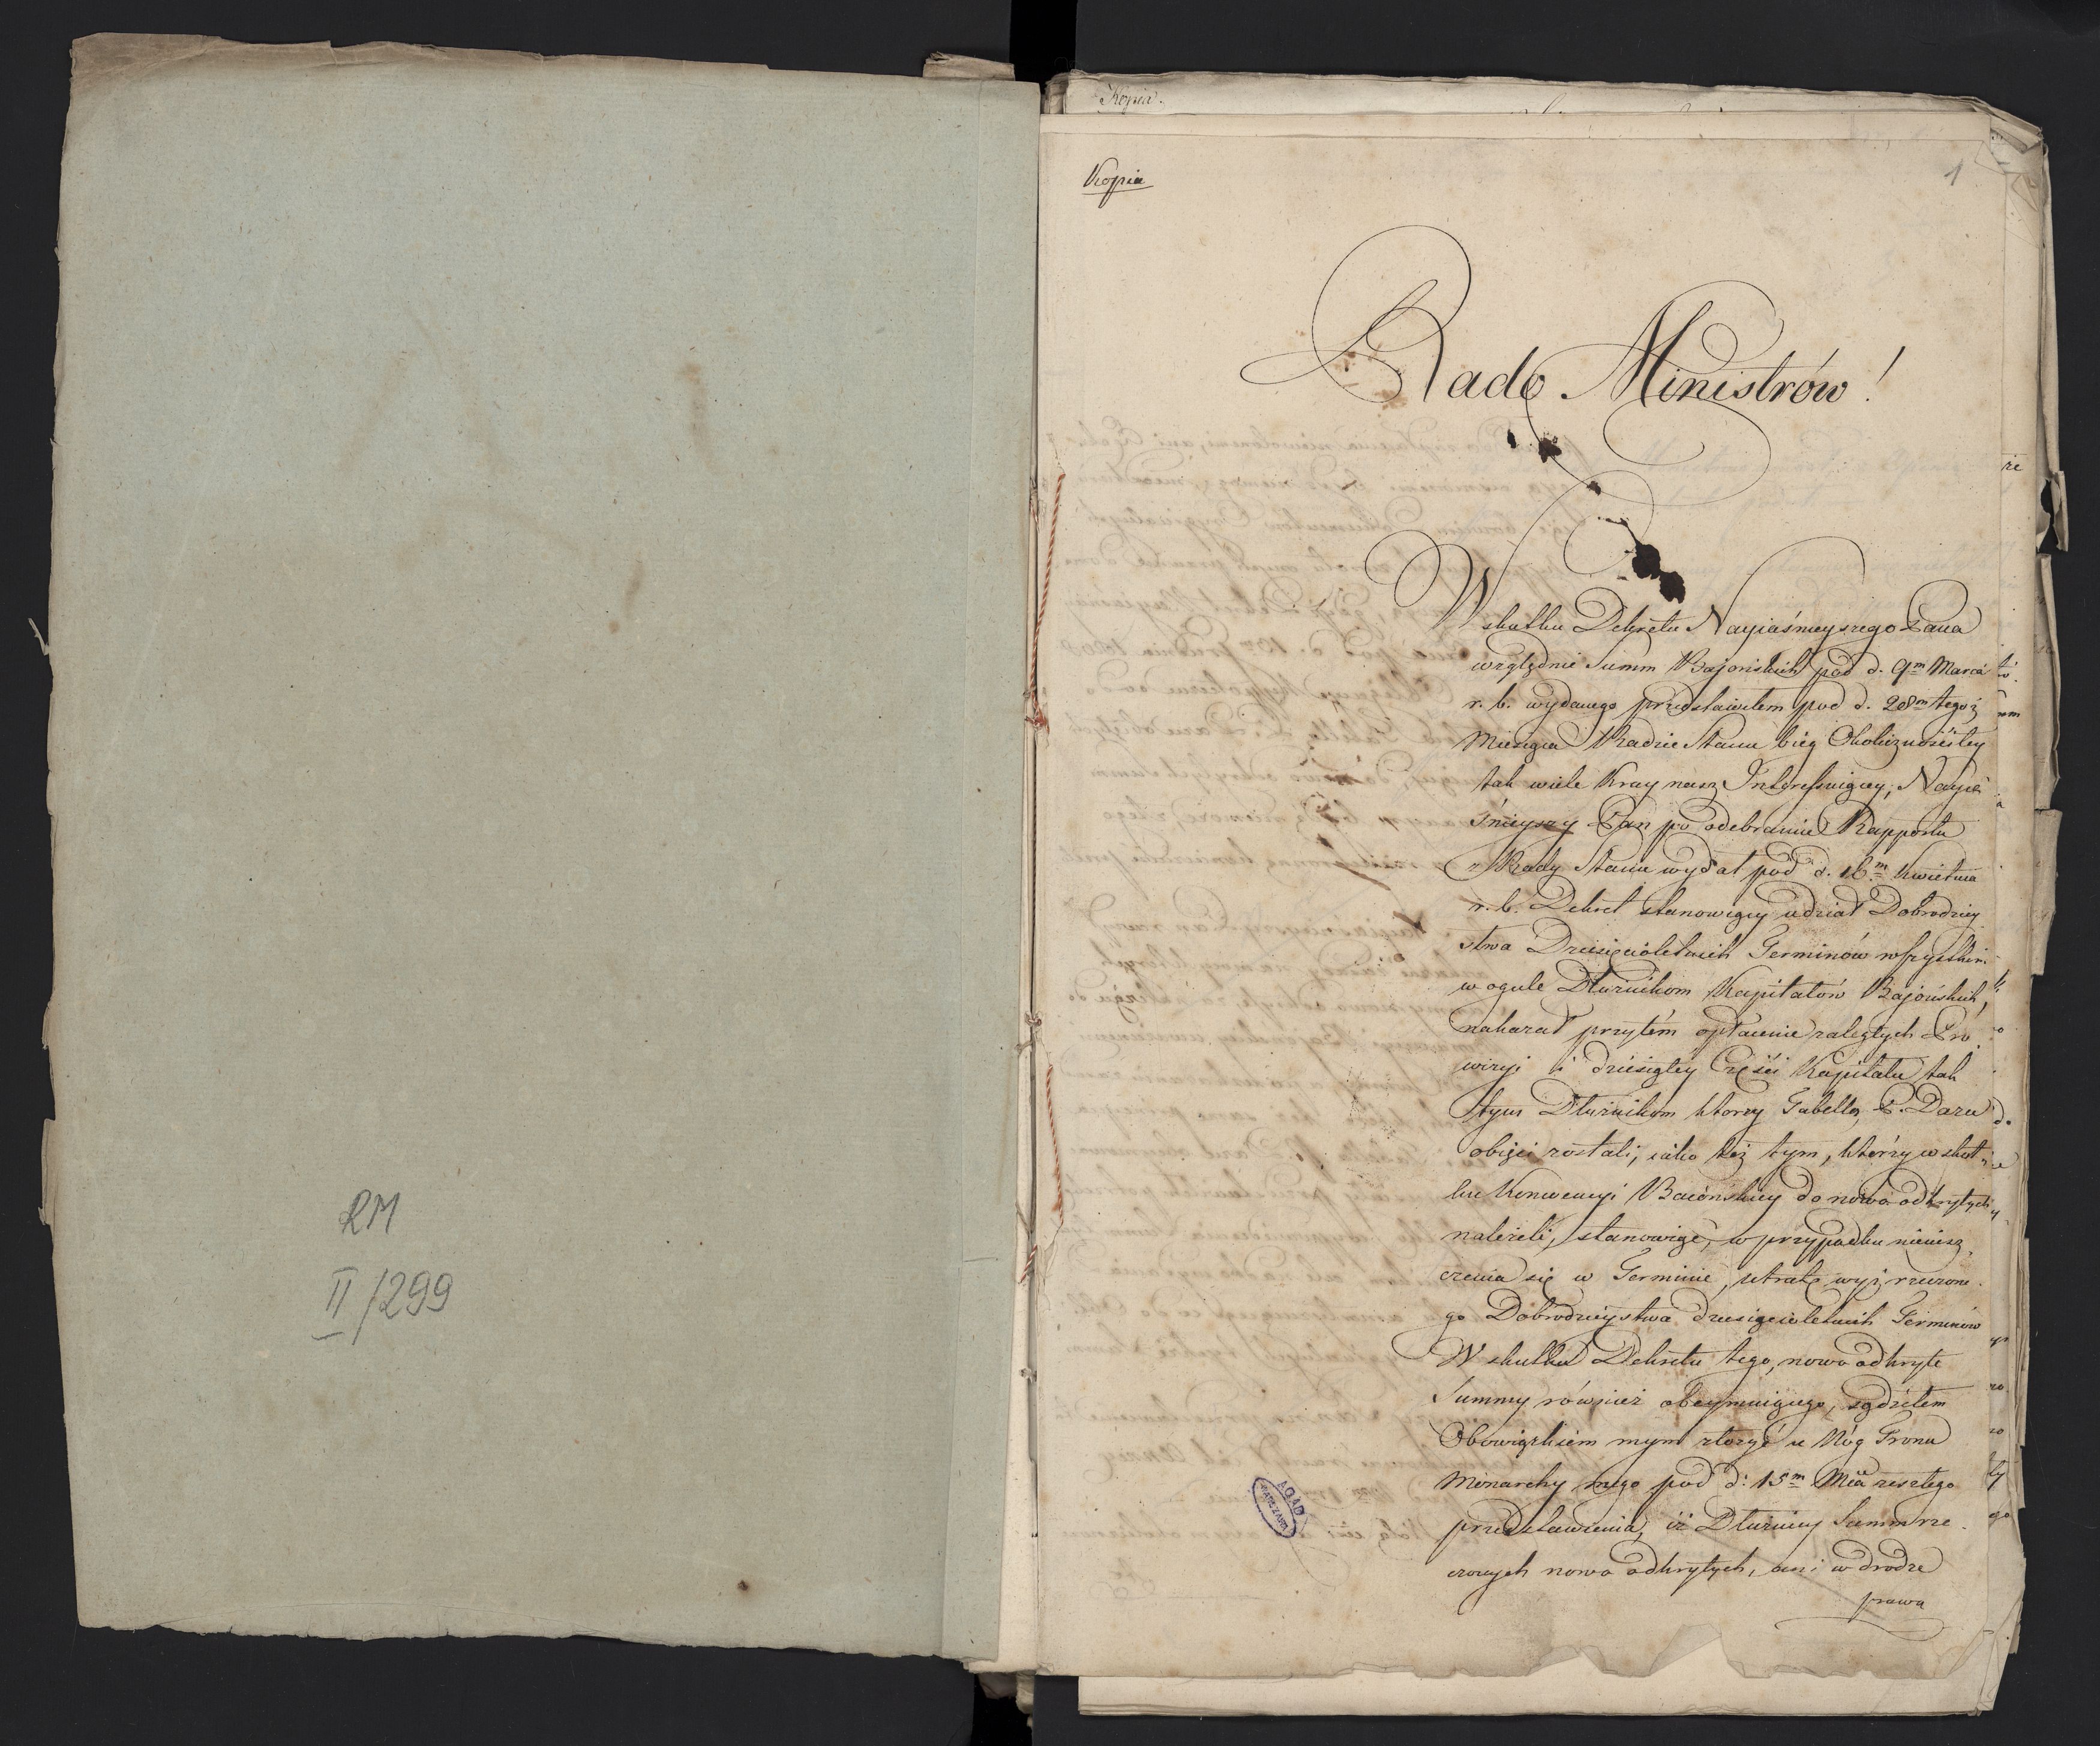 RM
II/299
Kopia.
Kopia
1
Rado Ministrów!
W skutku Dekretu Nayiaśnieyszego Pana
względnie Summ Bajońskich pod d. 9m Marca
r. b. wydanego przedstawiłem pod d. 28m tegoż
Miesiąca Radzie Stanu bieg Okoliczności tey
tak wiele Kray nasz Interessuiącey; Nayia
śnieyszy Pan po odebraniu Rapportu
z Rady Stanu wydał pod d. 16m Kwietnia
r. b. Dekret stanowiący udział Dobrodziey
stwa Dziesięcioletnich Terminów wszystkim
w ogule Dłużnikom Kapitałów Bajońskich,
nakazał przytém opłacenie zaległych Pro
wizyi i dziesiątey Części Kapitału tak
tym Dłużnikom ktorzy Tabellą P. Daru
obięci zostali, iako też tym, którzy w skut
ku Konwencyi Baiońskiey do nowo odkrytych
należeli, stanowiąc, w przypadku nieuisz
czenia się w Terminie, utratę wyż rzeczone
go Dobrodzieystwa dziesięcioletnich Terminów
W skutku Dekretu tego, nowo odkryte
Summy również obeymuiącego, sądziłem
Obowiązkiem mym złożyć u Nóg Tronu
Monarchy mego pod d: 15m Mca zeszłego
przedstawienia, iż Dłużnicy Summ rze
czonych nowo odkrytych, ani w drodze
prawa
AGAD
WARSZAWA